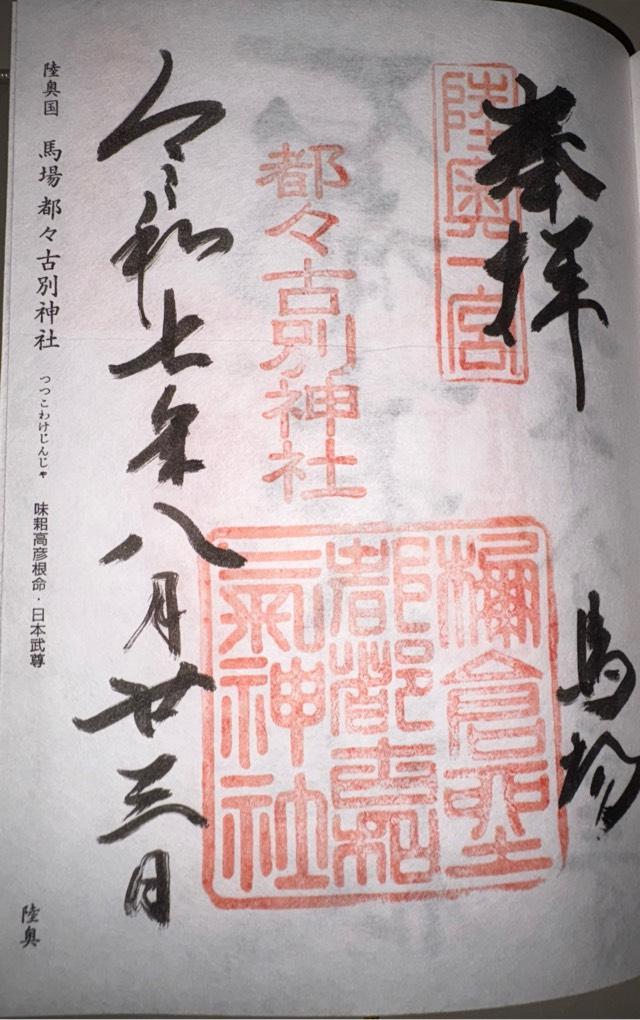 奉拝
馬場
陸奥一宮
都々古別神社
棚倉
都都古和
氣神社
令和七年八月廿三日
陸奥国 馬場都々古別神社 つつこわけじんじゃ 味耜高彦根命・日本武尊
陸奥